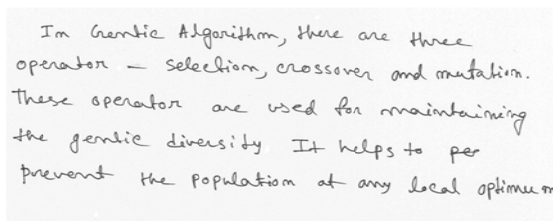 In Gentic Algorithm, there are three
operator – selection, crossover and mutation.
These operator are used for maintaining
the gentic diversity It helps to pe
prevent the population at any local optimum